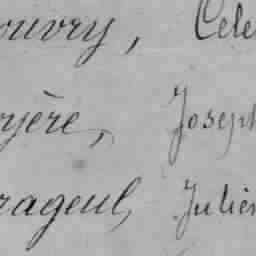 ouvry, Cele
oyère, Joseph
rageul, Julien